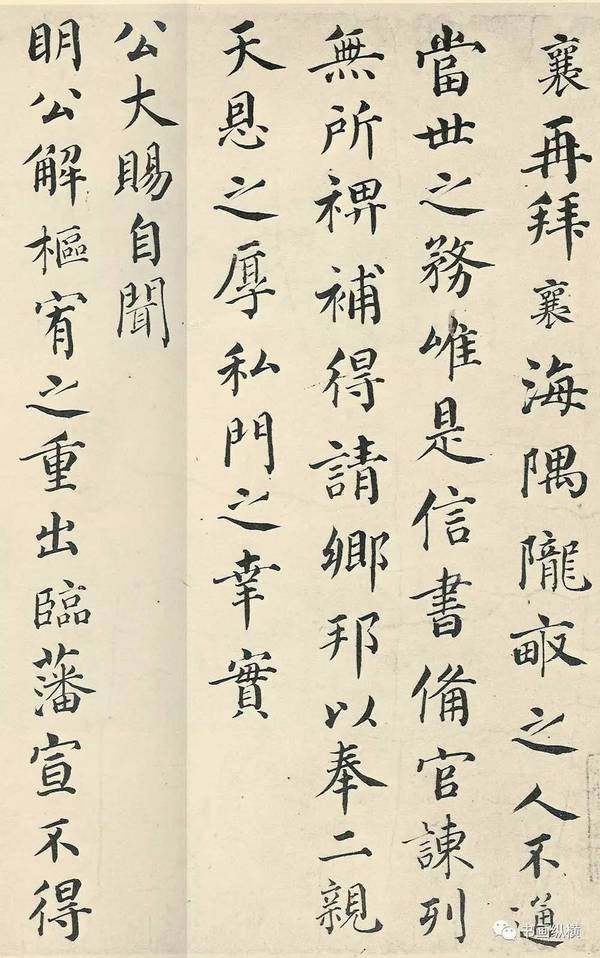 襄再拜襄海隅隴畝之人不通
當世之務唯是信書備官諫列
無所裨補得請鄉邦以奉二親
天恩之厚私門之幸實
公大賜自聞
明公解樞宥之重出臨藩宣不得
书画纵横